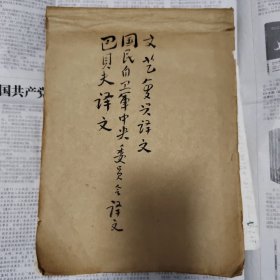 文艺复兴译文
国民自卫军中央委员会译文
巴贝夫译文
国共产党